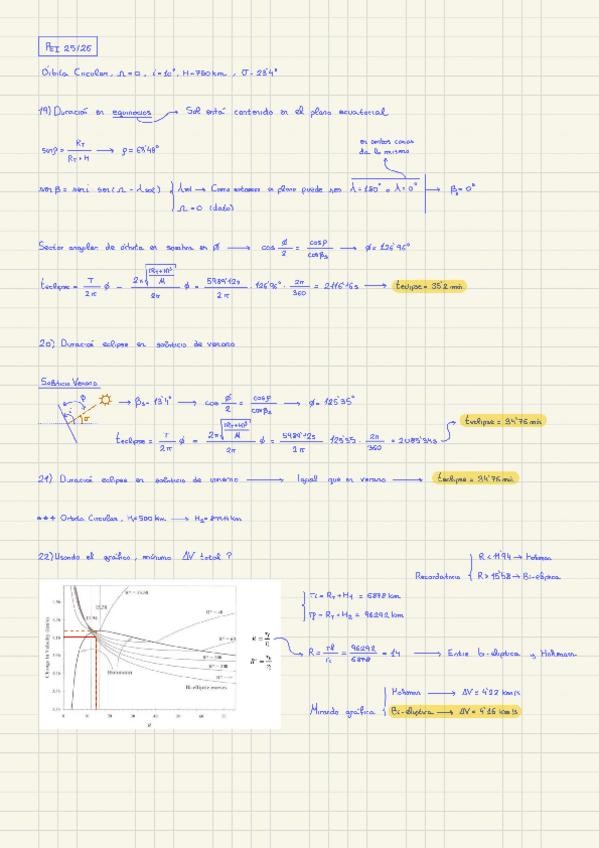 PEI 25/26
Órbita Circular, Ω=0, i=10°, H=760km, σ=23'4°
19) Duración en equinocios → Sol está contenido en el plano ecuatorial
en ambos casos
da lo mismo
senρ = R_T / (R_T+H) → ρ=63'48°
senβ = sen i sen(Ω - λsol) { λsol → Como estamos en plano puede ser λ=180° o λ=0° → βs=0°
Ω=0 (dato)
Sector angular de órbita en sombra en ϕ → cos ϕ/2 = cosρ/cosβs → ϕ=126'96°
teclipse = T/2π ϕ = 2π√((R_T+H)³/μ)/2π ϕ = 5989'12s/2π · 126'96° · 2π/360 = 2116'6s → teclipse = 35'2 min
20) Duración eclipse en solsticio de verano
Solsticio Verano
→ βs=13'4° → cos ϕ/2 = cosρ/cosβs → ϕ=125'35°
teclipse = T/2π ϕ = 2π√((R_T+H)³/μ)/2π ϕ = 5989'12s/2π · 125'35 · 2π/360 = 2085'34s
teclipse = 34'76 min
21) Duración eclipse en solsticio de invierno → Igual que en verano → teclipse = 34'76 min
*** Órbita Circular, H₁=500 km →
22) Usando el gráfico, mínimo ΔV total?
Recordatorio { R<11'94 → Hohman
R>15'58 → Bi-elíptica
ri = R_T+H₁ = 6878 km
rf = R_T+H₂ = 96292 km
R = rf/ri = 96292/6878 = 14 → Entre bi-elíptica y Hohmann
Mirando gráfica { Hohman → ΔV = 4'22 km/s
Bi-elíptica → ΔV = 4'16 km/s
Change in Velocity
15.58
11.94
Hohmann
Bi-elliptic transfers
R